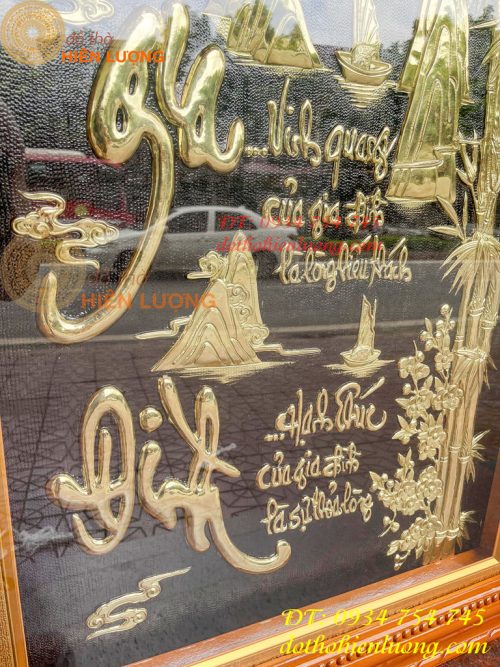 đồ thờ
HIỀN LƯƠNG
gia
...Vinh quang
của gia đình
là lòng hiếu khách
ĐT: 0934 754 745
dothohienluong.com
đồ thờ
HIỀN LƯƠNG
Đình
...Hạnh Phúc
của gia đình
là sự thỏa lòng
ĐT: 0934 754 745
dothohienluong.com